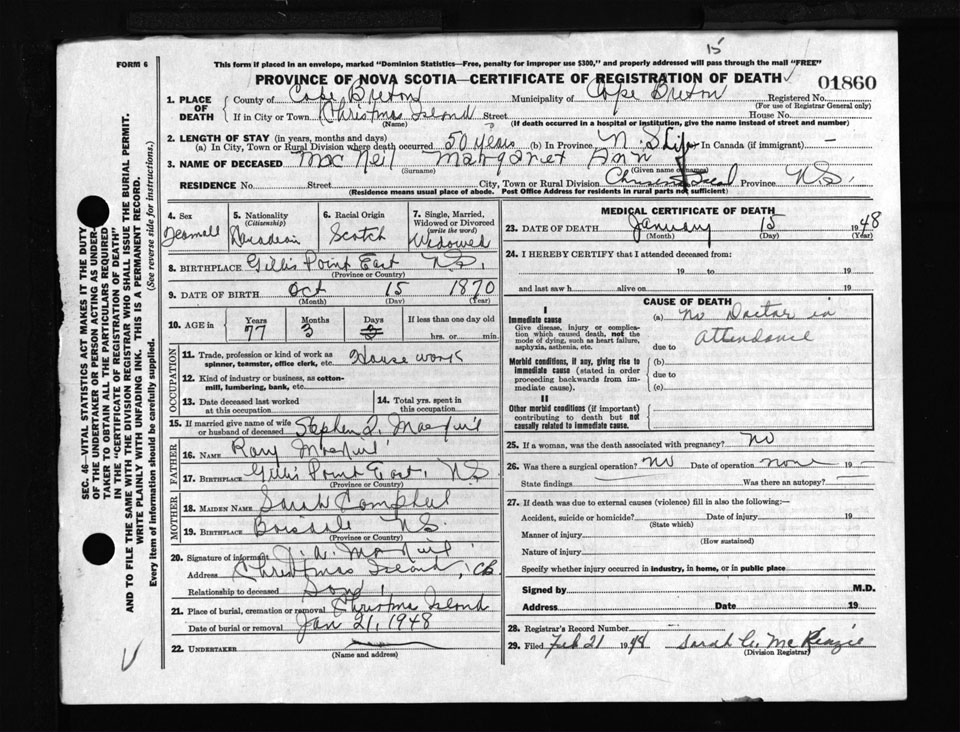 15
FORM 6
This form if placed in an envelope, marked "Dominion Statistics—Free, penalty for improper use $300," and properly addressed will pass through the mail "FREE"
PROVINCE OF NOVA SCOTIA—CERTIFICATE OF REGISTRATION OF DEATH
01860
1. PLACE OF DEATH
County of Cape Breton Municipality of Cape Breton Registered No.
(For use of Registrar General only)
If in City or Town Christmas Island Street House No.
(Name) (If death occurred in a hospital or institution, give the name instead of street and number)
2. LENGTH OF STAY (in years, months and days)
(a) In City, Town or Rural Division where death occurred 50 years (b) In Province N.S. Life In Canada (if immigrant) —
3. NAME OF DECEASED Mac Neil Margaret Ann
(Surname) (Given name or names)
RESIDENCE No. Street City, Town or Rural Division Province N.S.
(Residence means usual place of abode. Post Office Address for residents in rural parts not sufficient)
SEC. 46—VITAL STATISTICS ACT MAKES IT THE DUTY
OF THE UNDERTAKER OR PERSON ACTING AS UNDER-
TAKER TO OBTAIN ALL THE PARTICULARS REQUIRED
IN THE "CERTIFICATE OF REGISTRATION OF DEATH"
AND TO FILE THE SAME WITH THE DIVISION REGISTRAR WHO SHALL ISSUE THE BURIAL PERMIT.
WRITE PLAINLY WITH UNFADING INK. THIS IS A PERMANENT RECORD.
Every item of information should be carefully supplied. (See reverse side for instructions.)
4. Sex
5. Nationality (Citizenship)
6. Racial Origin Scotch
7. Single, Married, Widowed or Divorced (write the word) Widowed
8. BIRTHPLACE Gillis Point East N.S.
(Province or Country)
9. DATE OF BIRTH Oct 15 1870
(Month) (Day) (Year)
10. AGE in Years Months Days If less than one day old
77 3 hrs. or min.
OCCUPATION
11. Trade, profession or kind of work as spinner, teamster, office clerk, etc. House work
12. Kind of industry or business, as cotton-mill, lumbering, bank, etc.
13. Date deceased last worked at this occupation
14. Total yrs. spent in this occupation
15. If married give name of wife or husband of deceased Stephen
FATHER
16. Name Rory MacNeil
17. Birthplace Gillis Point East, N.S.
(Province or Country)
MOTHER
18. Maiden Name Sarah Campbell
19. Birthplace Boisdale N.S.
(Province or Country)
20. Signature of informant
Address Christmas Island, C.B.
Relationship to deceased Son
21. Place of burial, cremation or removal Christmas Island
Date of burial or removal Jan 21, 1948
22. UNDERTAKER
(Name and address)
MEDICAL CERTIFICATE OF DEATH
23. DATE OF DEATH January 15 1948
(Month) (Day) (Year)
24. I HEREBY CERTIFY that I attended deceased from:
19 to 19
and last saw h alive on 19
CAUSE OF DEATH
I
Immediate cause
Give disease, injury or complication which caused death, not the mode of dying, such as heart failure, asphyxia, asthenia, etc.
(a) No Doctor in attendance
due to
Morbid conditions, if any, giving rise to immediate cause (stated in order proceeding backwards from immediate cause).
(b)
due to
(c)
II
Other morbid conditions (if important) contributing to death but not causally related to immediate cause.
25. If a woman, was the death associated with pregnancy? No
26. Was there a surgical operation? No Date of operation none 19 —
State findings Was there an autopsy? —
27. If death was due to external causes (violence) fill in also the following:—
Accident, suicide or homicide? Date of injury 19
(State which)
Manner of injury
(How sustained)
Nature of injury
Specify whether injury occurred in industry, in home, or in public place
Signed by M.D.
Address Date 19
28. Registrar's Record Number
29. Filed Feb 21 1948 Sarah C. McKenzie
(Division Registrar)